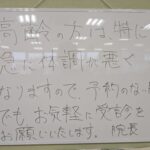 高齢の方は、特に
急に体調が悪く
なりますので、予約のない
でも、お気軽に受診を
お願いいたします。院長